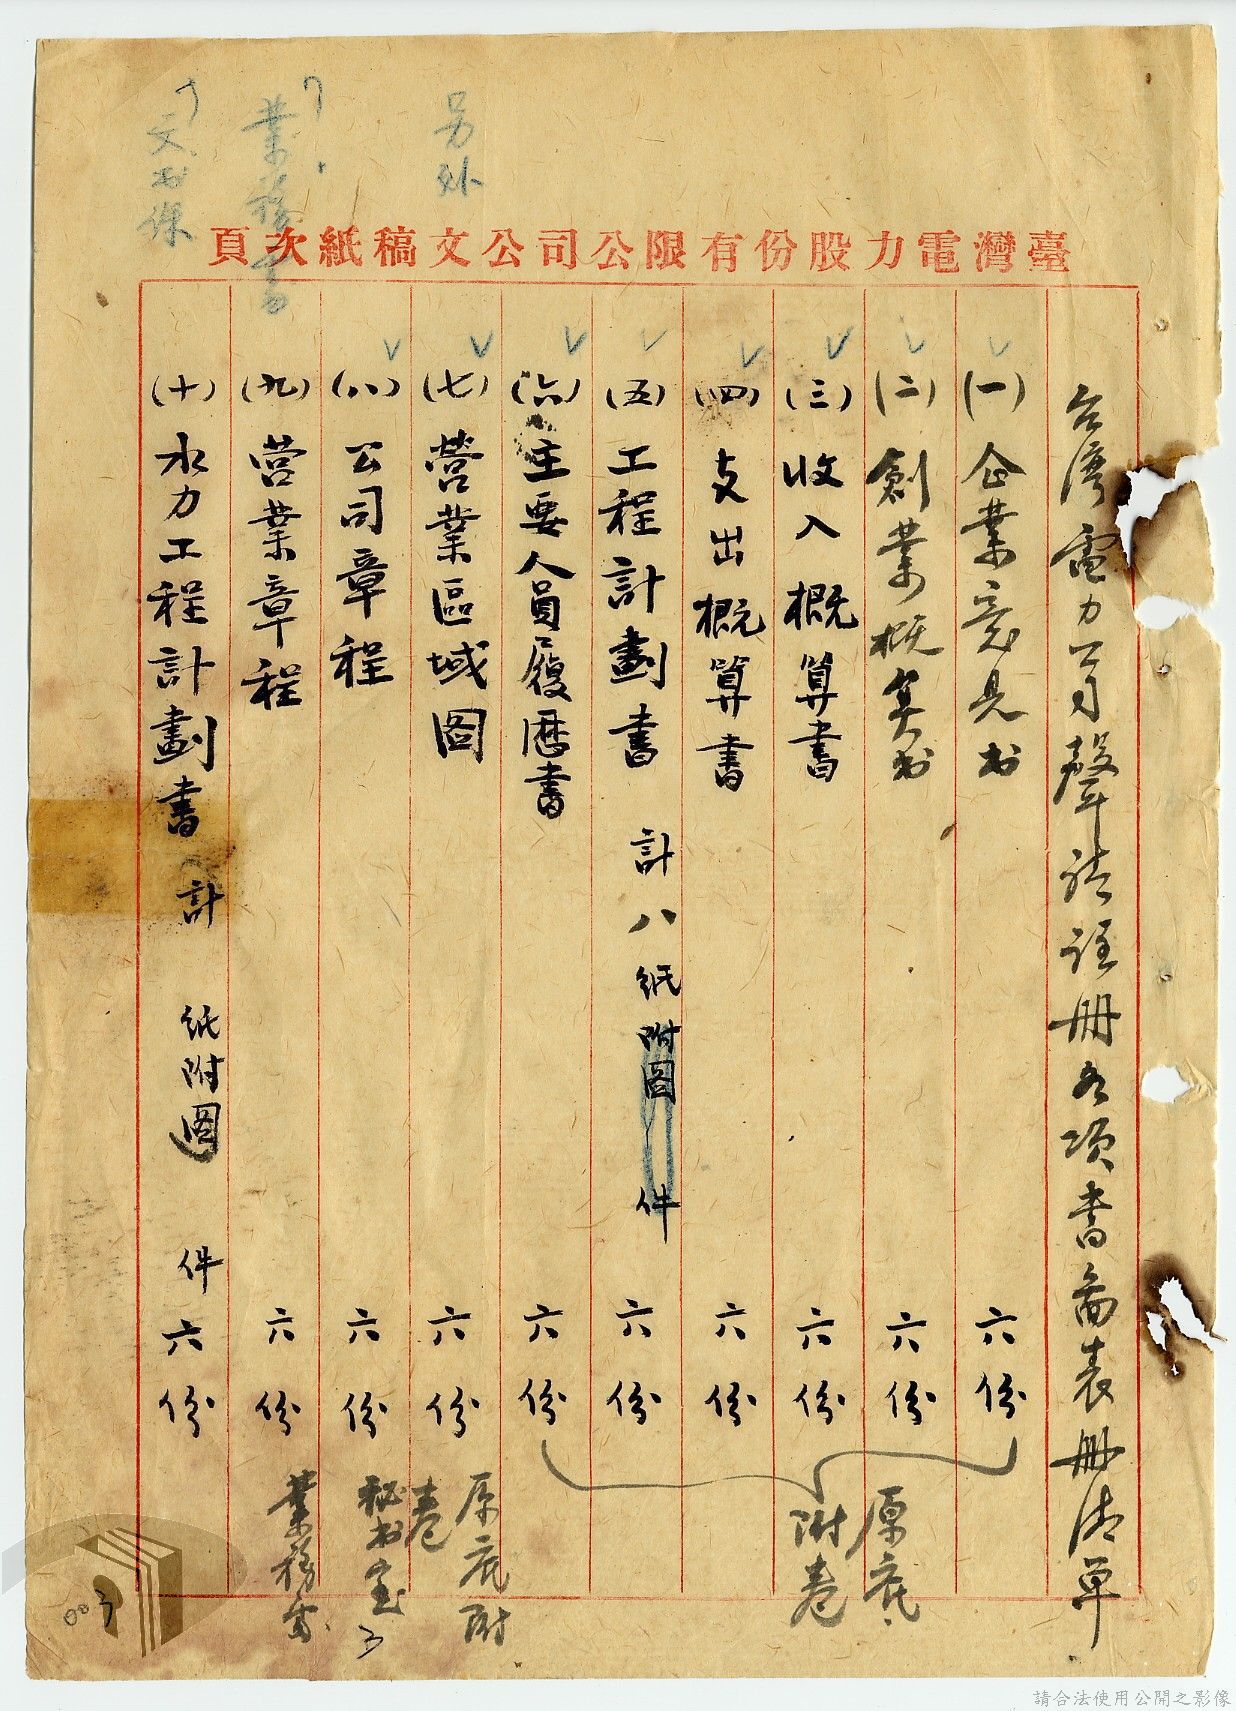 臺灣電力股份有限公司公文稿紙次頁
台湾電力公司聲請註冊各項書圖表冊清單
(一)企業意見书 六份
(二)創業概算书 六份
(三)收入概算書 六份
(四)支出概算書 六份
(五)工程計劃書 計八紙附圖 件 六份
(六)主要人員履歷書 六份
(七)營業區域圖 六份
(八)公司章程 六份
(九)营業章程 六份
(十)水力工程計劃書 計 紙附圖 件 六份
原底附卷
原底附卷
秘书室
業務處
另外
業務
文书課
003
請合法使用公開之影像